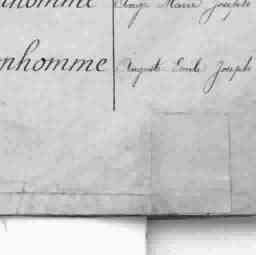 nhomme Marie Joseph
nhomme Auguste Emile Joseph